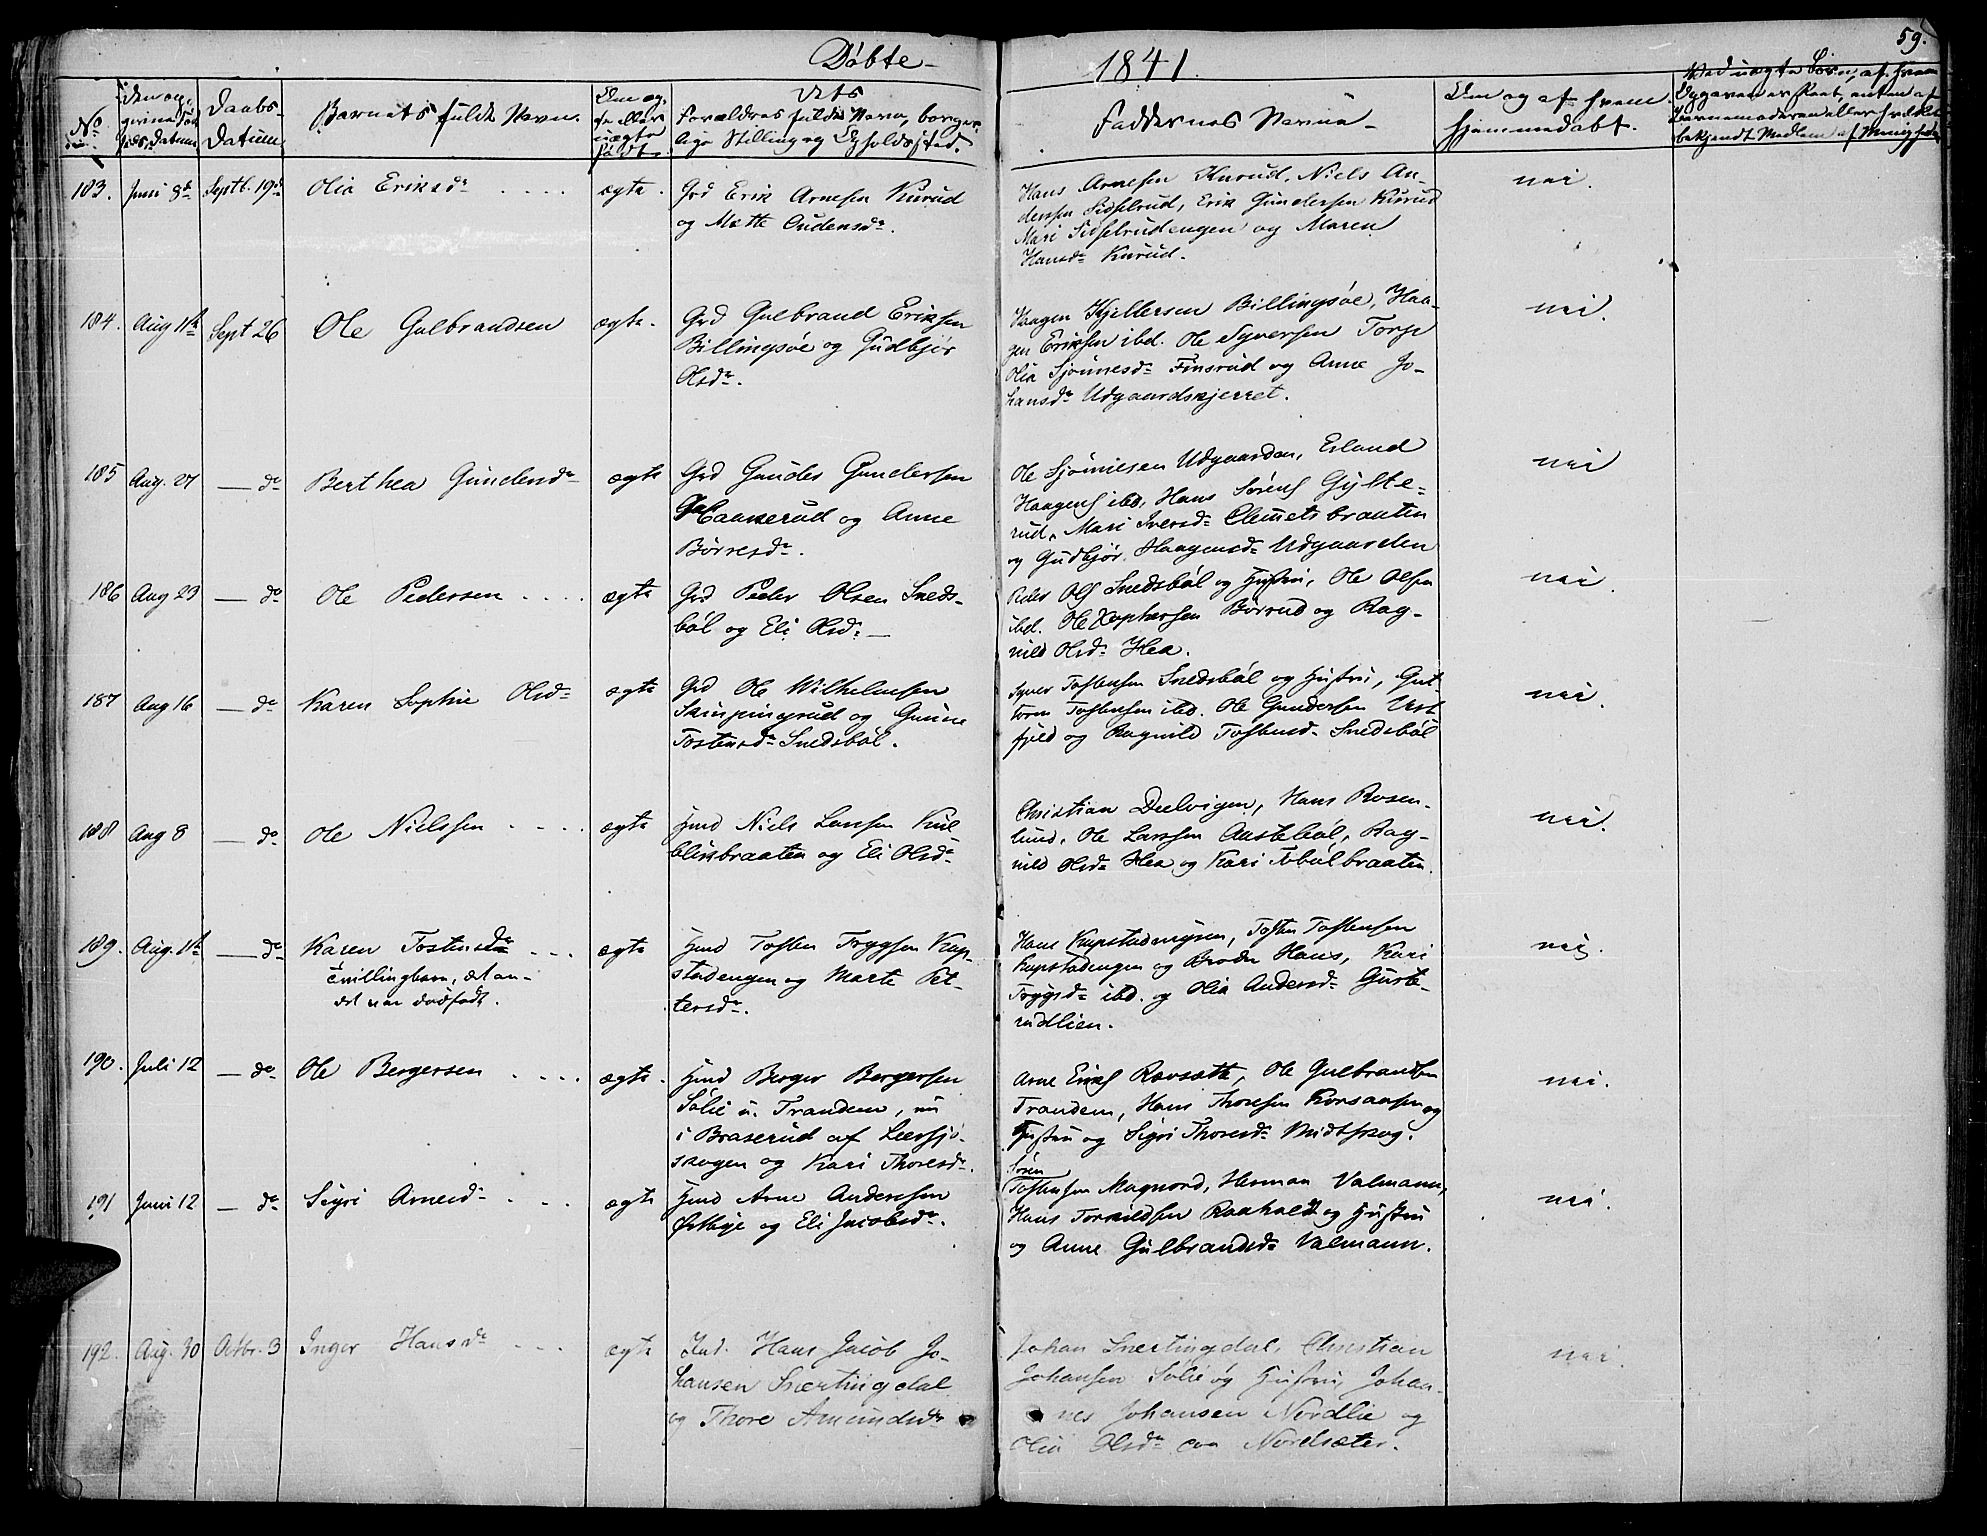 Døbte 1841. 59.
No
Daabs-
Datum
Barnets fulde Navn.
Dets
Forældres fulde Navn, borger-
lige Stilling og Opholdssted.
Faddernes Navne
Om og af hvem
hjemmedøbt.
183. Juni 8de Septb. 19de Olia Eriksdr .... ægte. Grd Erik Arnesen Kurud
og Mette Audensdr.
Hans Arnesen Kurud, Niels An-
derssen Sidselrud, Erik Gundersen Kurud
Mari Sidselrudengen og Maren
Hansdr Kurud.
nei.
184. Aug 11te Sept 26 Ole Gulbrandsen ægte. Grd Gulbrand Eriksen
Billingsøe og Gudbjør
Olsdr.
Haagen Kjeldsen Billingsøe, Haa-
gen Eriksen ibd. Ole Syversen Torp
Olia Sjønnesdr Finsrud og Anne Jo-
hansdr Udgaardskjerret.
nei.
185 Aug. 27 — do Berthea Gundersdr ægte Grd Gunder Gundersen
Haakerud og Anne
Børresdr.
Ole Sjønnesen Udgaarden, Erland
Haagens ibd, Hans Sørens Gylte-
rud, Mari Iversdr Clemetsbraaten
og Gudbjør Haagensdr Udgaarden
nei
186 Aug 29 — do Ole Pedersen .... ægte Grd Peder Olsen Sneds-
bøl og Eli Olsdr —
Peder Ols Snedsbøl og Hustru, Ole Olsen
ibd. Ole Xophersen Børrud og Rag-
nild Olsdr Hea.
nei.
187 Aug 16 — do Karen Sophie Olsdr ægte Grd Ole Wilhelmsen
Skinpingrud og Gunne
Tostensdr Snedsbøl.
Syver Tostensen Snedsbøl og Hustru, Gut-
torm Tostensen ibd. Ole Gundersen Vest-
fjeld og Ragnild Tostensdr Snedsbøl
nei.
188 Aug 8 — do Ole Nielsen .... ægte Hmd Niels Larsen Kul-
blikbraaten og Eli Olsdr
Christian Deelvigen, Hans Rosen-
lund, Ole Larssen Austebøl, Rag-
nild Olsdr Hea og Kari Tobølbraaten.
nei.
189. Aug. 11te — do Karen Tostensdr ... ægte Hmd Tosten Trygsen Kap-
Tvillingbarn, det an-
det var dødfødt.
stadengen og Marte Pet-
tersdr.
Hans Kapstadengen, Tosten Tostensen
Kapstadengen og Broder Hans, Kari
Trygsdr ibd. og Olia Andersdr Guste-
rudlien.
nei.
190. Juli 12 — do Ole Bergersen .... ægte. Hmd Berger Bergersen
Sølie u. Trandem, nu
i Braserud af Leersjø-
skogen og Kari Thoresdr.
Arne Eriks Ravsæth, Ole Gulbrandsen
Trandem, Hans Thoresen Korsaasen og
Hustru og Sigri Thoresdr Midtskog.
nei.
191 Juni 12 — do Sigri Arnesdr ... ægte Hmd Arne Anderssen
Østbye og Eli Jacobsdr.
Søren
Tostensen Magnord, Herman Valmann,
Hans Torkildsen Raaholdt og Hustru
og Anne Gulbrandsdr Valmann.
nei.
192. Aug. 30 Octbr. 3 Inger Hansdr ... ægte Ind. Hans Jacob Jo-
hansen Snertingdal
og Thore Amundsdr
Johan Snertingdal, Christian
Johansen Sølie og Hustru, Johan-
nes Johansen Nordlie og
Olia Olsdr paa Nordsæter.
nei.